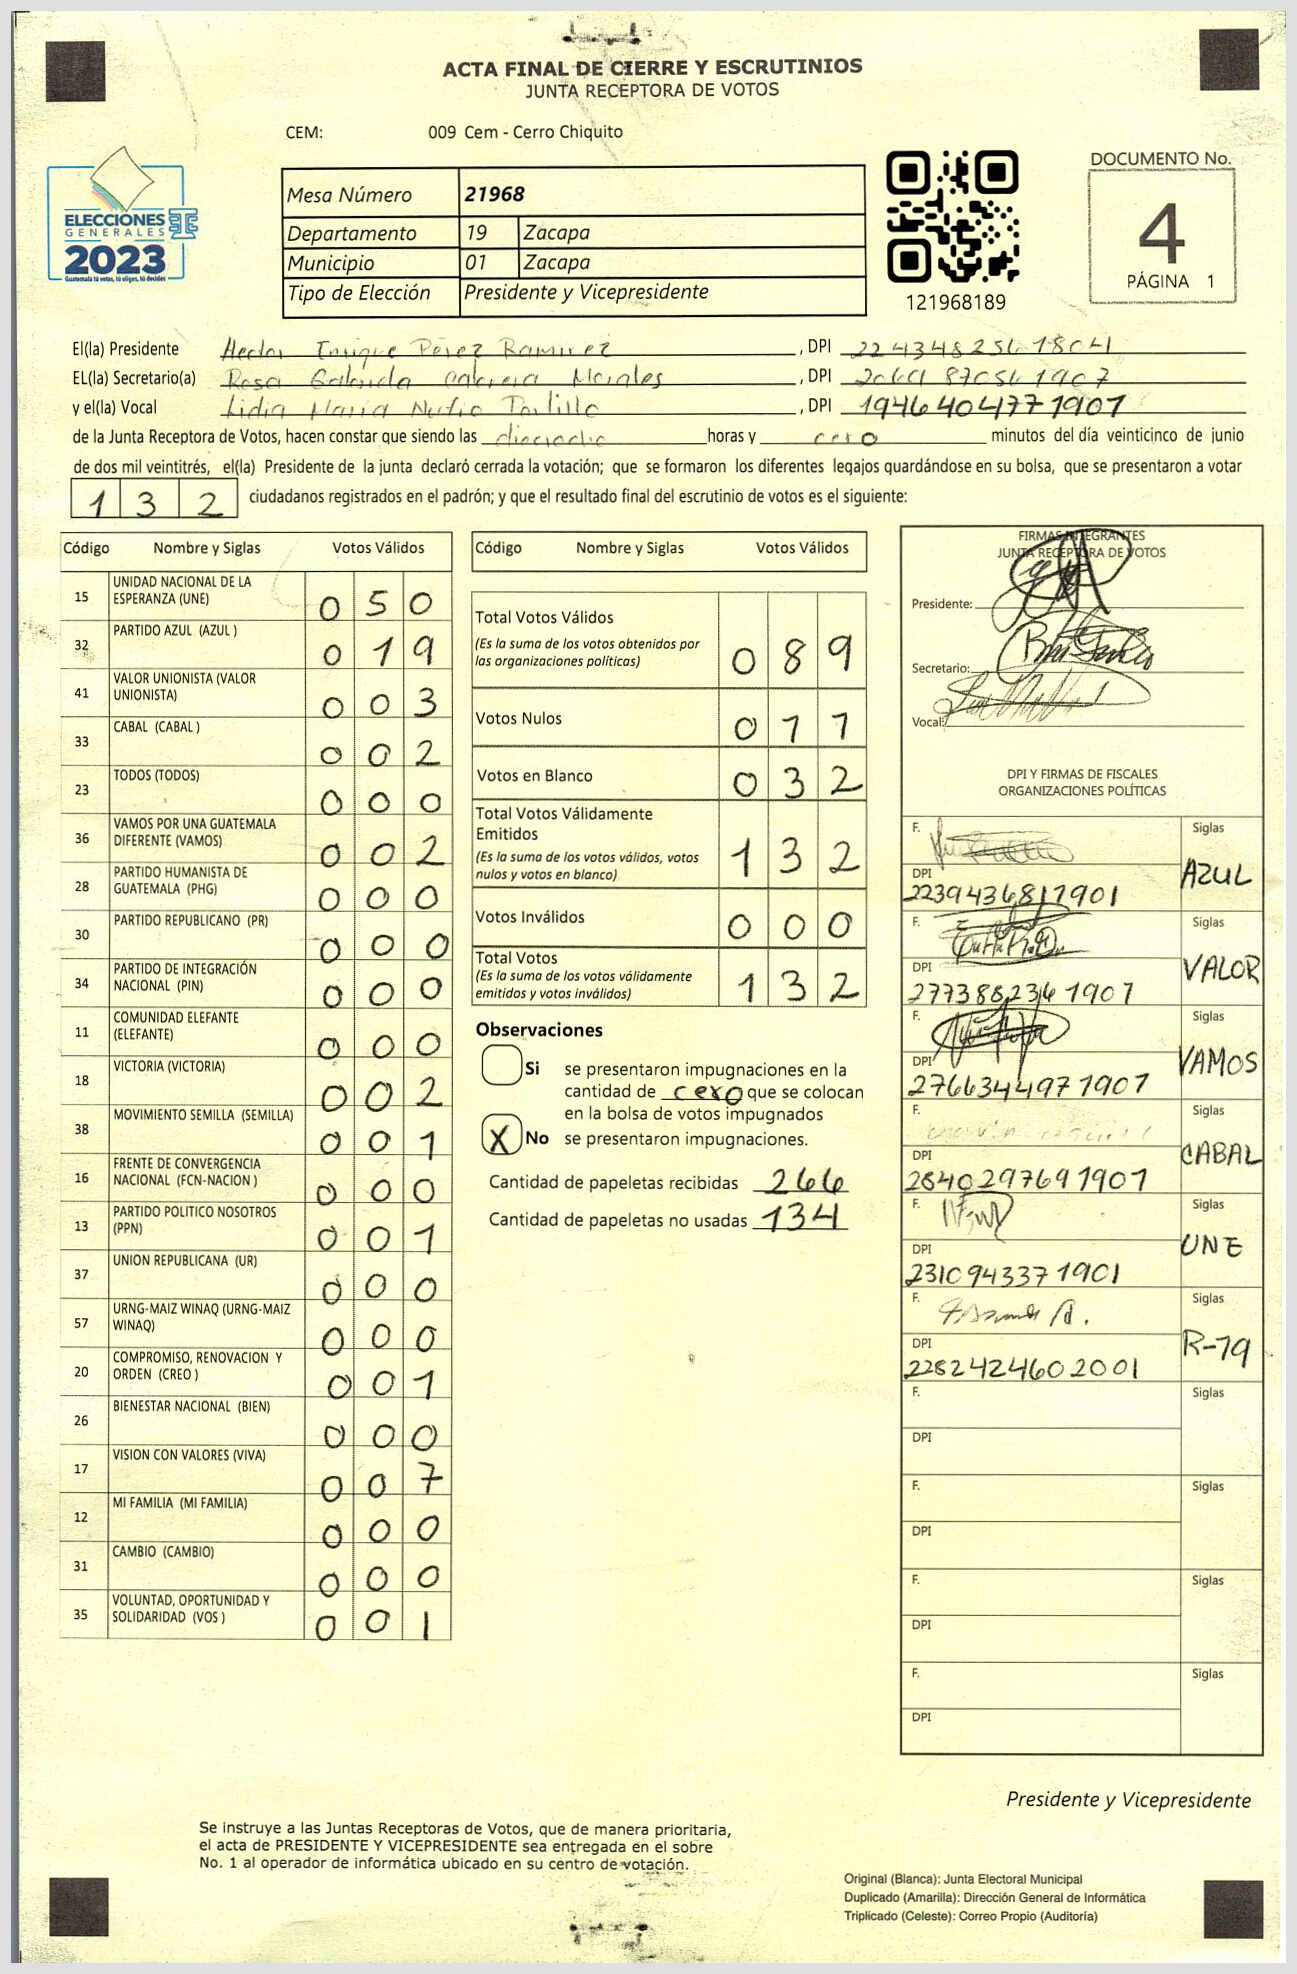 ACTA FINAL DE CIERRE Y ESCRUTINIOS
JUNTA RECEPTORA DE VOTOS
CEM: 009 Cem - Cerro Chiquito
ELECCIONES
GENERALES
2023
Guatemala tú votas, tú eliges, tú decides
Mesa Número 21968
Departamento 19 Zacapa
Municipio 01 Zacapa
Tipo de Elección Presidente y Vicepresidente
121968189
DOCUMENTO No.
4
PÁGINA 1
El(la) Presidente Hector Enrique Pérez Ramirez , DPI 2243482561804
EL(la) Secretario(a) Rosa Gabriela Cabrera Morales , DPI
y el(la) Vocal Lidia María , DPI 1946404771901
de la Junta Receptora de Votos, hacen constar que siendo las dieciocho horas y cero minutos del día veinticinco de junio
de dos mil veintitrés, el(la) Presidente de la junta declaró cerrada la votación; que se formaron los diferentes legajos quardándose en su bolsa, que se presentaron a votar
132 ciudadanos registrados en el padrón; y que el resultado final del escrutinio de votos es el siguiente:
Código Nombre y Siglas Votos Válidos
15 UNIDAD NACIONAL DE LA ESPERANZA (UNE) 050
32 PARTIDO AZUL (AZUL ) 019
41 VALOR UNIONISTA (VALOR UNIONISTA) 003
33 CABAL (CABAL ) 002
23 TODOS (TODOS) 000
36 VAMOS POR UNA GUATEMALA DIFERENTE (VAMOS) 002
28 PARTIDO HUMANISTA DE GUATEMALA (PHG) 000
30 PARTIDO REPUBLICANO (PR) 000
34 PARTIDO DE INTEGRACIÓN NACIONAL (PIN) 000
11 COMUNIDAD ELEFANTE (ELEFANTE) 000
18 VICTORIA (VICTORIA) 002
38 MOVIMIENTO SEMILLA (SEMILLA) 001
16 FRENTE DE CONVERGENCIA NACIONAL (FCN-NACION ) 000
13 PARTIDO POLITICO NOSOTROS (PPN) 001
37 UNION REPUBLICANA (UR) 000
57 URNG-MAIZ WINAQ (URNG-MAIZ WINAQ) 000
20 COMPROMISO, RENOVACION Y ORDEN (CREO ) 001
26 BIENESTAR NACIONAL (BIEN) 000
17 VISION CON VALORES (VIVA) 007
12 MI FAMILIA (MI FAMILIA) 000
31 CAMBIO (CAMBIO) 000
35 VOLUNTAD, OPORTUNIDAD Y SOLIDARIDAD (VOS ) 001
Código Nombre y Siglas Votos Válidos
Total Votos Válidos 089
(Es la suma de los votos obtenidos por
las organizaciones políticas)
Votos Nulos 011
Votos en Blanco 032
Total Votos Válidamente
Emitidos 132
(Es la suma de los votos válidos, votos
nulos y votos en blanco)
Votos Inválidos 000
Total Votos 132
(Es la suma de los votos válidamente
emitidos y votos inválidos)
Observaciones
Si se presentaron impugnaciones en la
cantidad de cero que se colocan
en la bolsa de votos impugnados
X No se presentaron impugnaciones.
Cantidad de papeletas recibidas 266
Cantidad de papeletas no usadas 134
FIRMAS INTEGRANTES
JUNTA RECEPTORA DE VOTOS
Presidente:
Secretario:
Vocal:
DPI Y FIRMAS DE FISCALES
ORGANIZACIONES POLÍTICAS
F. Siglas
DPI AZUL
2239436811901
F. Siglas
DPI VALOR
2773882361907
F. Siglas
DPI VAMOS
2766344971901
F. Siglas
DPI CABAL
2840297691901
F. Siglas
DPI UNE
2310943371901
F. Siglas
DPI R-79
2282424602001
F. Siglas
DPI
F. Siglas
DPI
F. Siglas
DPI
F. Siglas
DPI
Presidente y Vicepresidente
Se instruye a las Juntas Receptoras de Votos, que de manera prioritaria,
el acta de PRESIDENTE Y VICEPRESIDENTE sea entregada en el sobre
No. 1 al operador de informática ubicado en su centro de votación.
Original (Blanca): Junta Electoral Municipal
Duplicado (Amarilla): Dirección General de Informática
Triplicado (Celeste): Correo Propio (Auditoría)